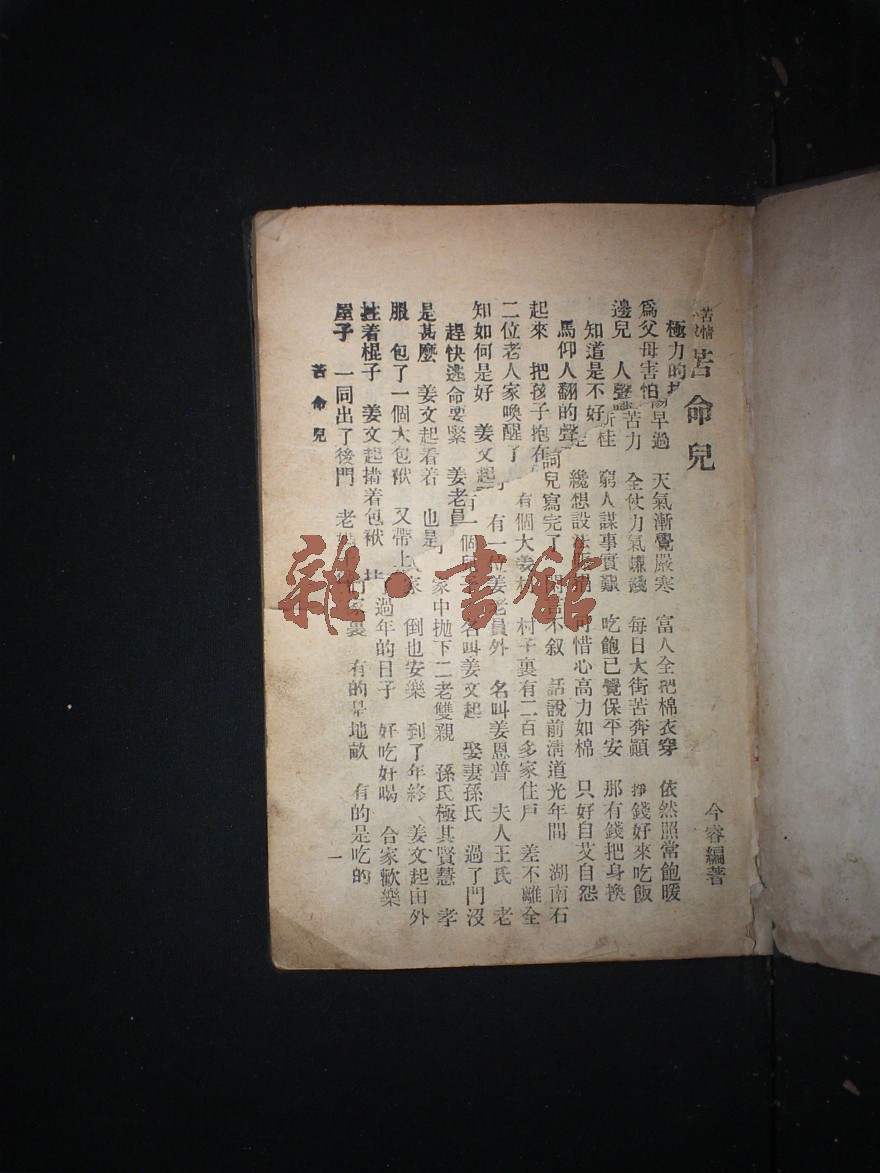 苦情
苦命兒
今睿編著
極力的 早過 天氣漸覺嚴寒 富人全把棉衣穿 依然照常飽暖
爲父母害怕 苦力 全仗力氣賺錢 每日大街苦奔顛 掙錢好來吃飯
邊兒 人聲 窮人謀事實艱 吃飽已覺保平安 那有錢把身換
知道是不好 纔想設法 可惜心高力如棉 只好自艾自怨
馬仰人翻的聲 詞兒寫完了 閑言不叙 話說前淸道光年間 湖南石
起來 把孩子抱在 有個大姜村 村子裏有二百多家住戶 差不離全
二位老人家喚醒了 有一位姜老員外 名叫姜恩普 夫人王氏 老
知如何是好 姜文起 有一個 名叫姜文起 娶妻孫氏 過了門沒
趕快逃命要緊 姜老員 家中拋下二老雙親 孫氏極其賢慧 孝
是甚麼 姜文起看着 也是 家 倒也安樂 到了年終 姜文起由外
服 包了一個大包袱 又帶上 過年的日子 好吃好喝 合家歡樂
拄着棍子 姜文起揹着包袱 家裏 有的是地畝 有的是吃的
屋子 一同出了後門 老
苦命兒
一
雜·書館